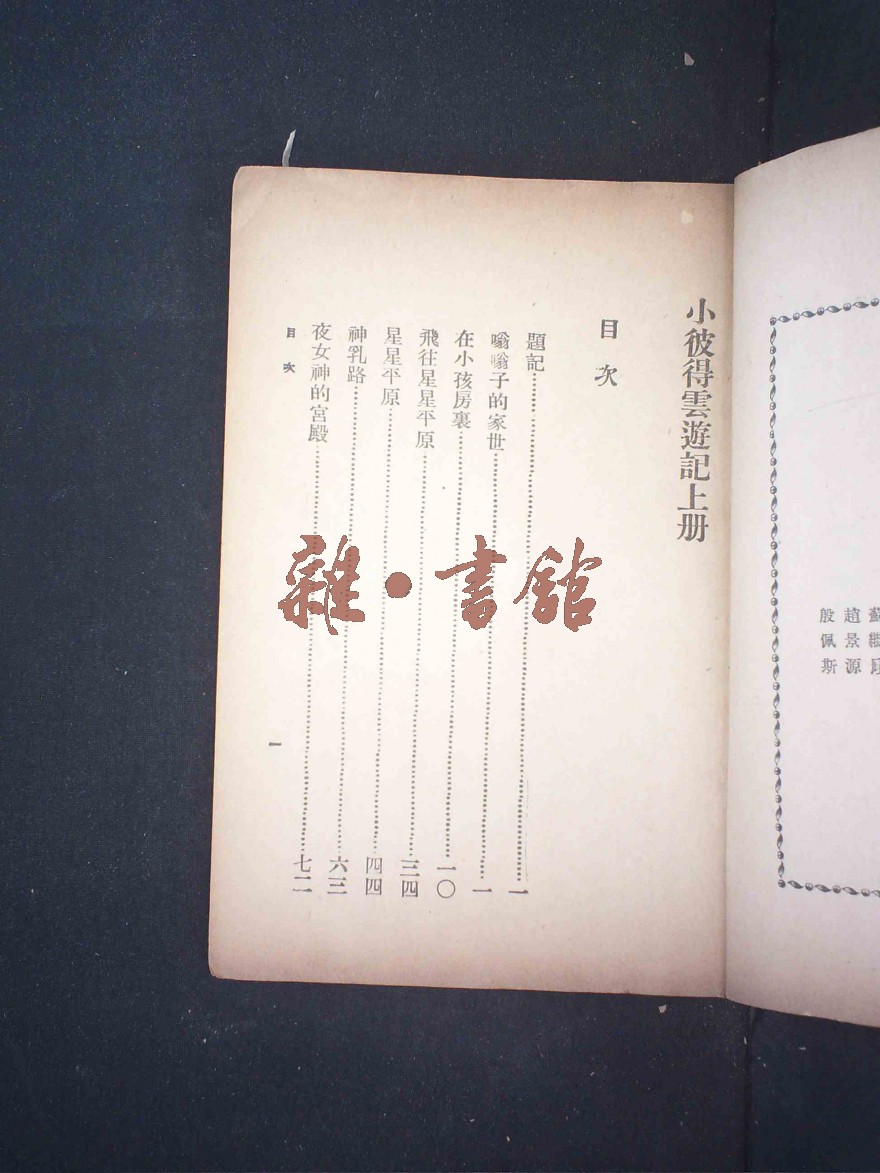 小彼得雲遊記上册
目次
題記……一
嗡嗡子的家世……一
在小孩房裏……一〇
飛往星星平原……三四
星星平原……四四
神乳路……六三
夜女神的宮殿……七二
目次
一
雜·書館
趙景源
殷佩斯